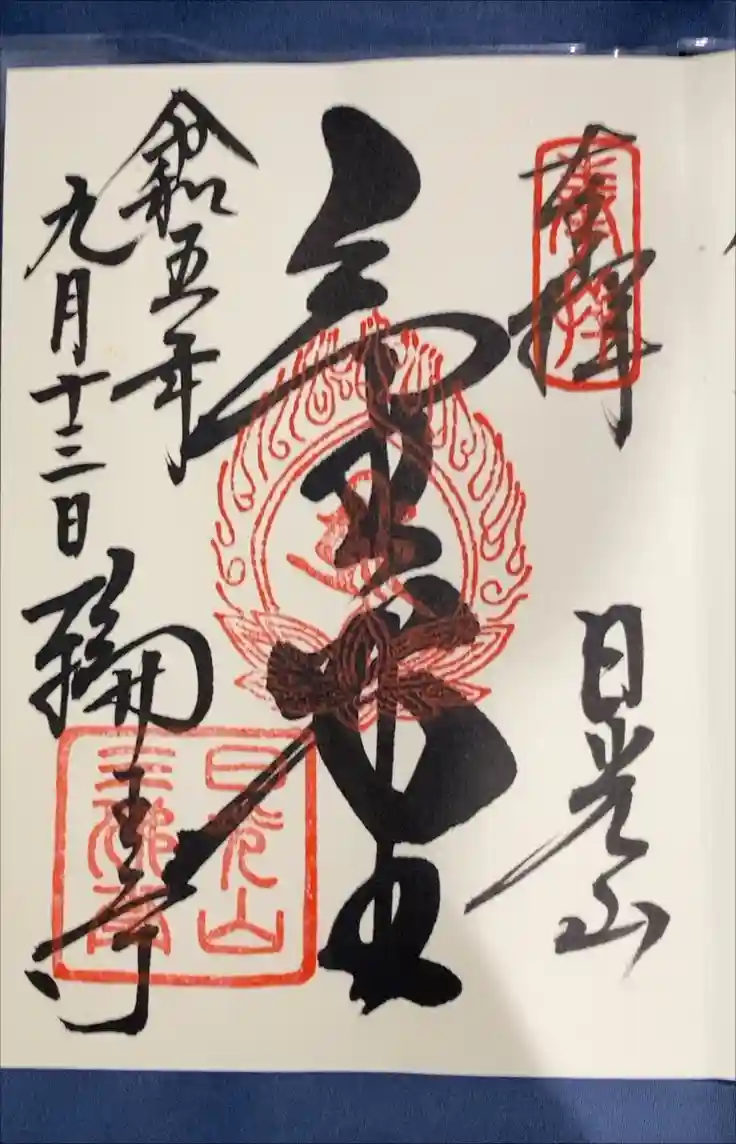 奉拝
日光山
金堂
令和五年
九月十三日
輪王寺
日光山
三佛堂